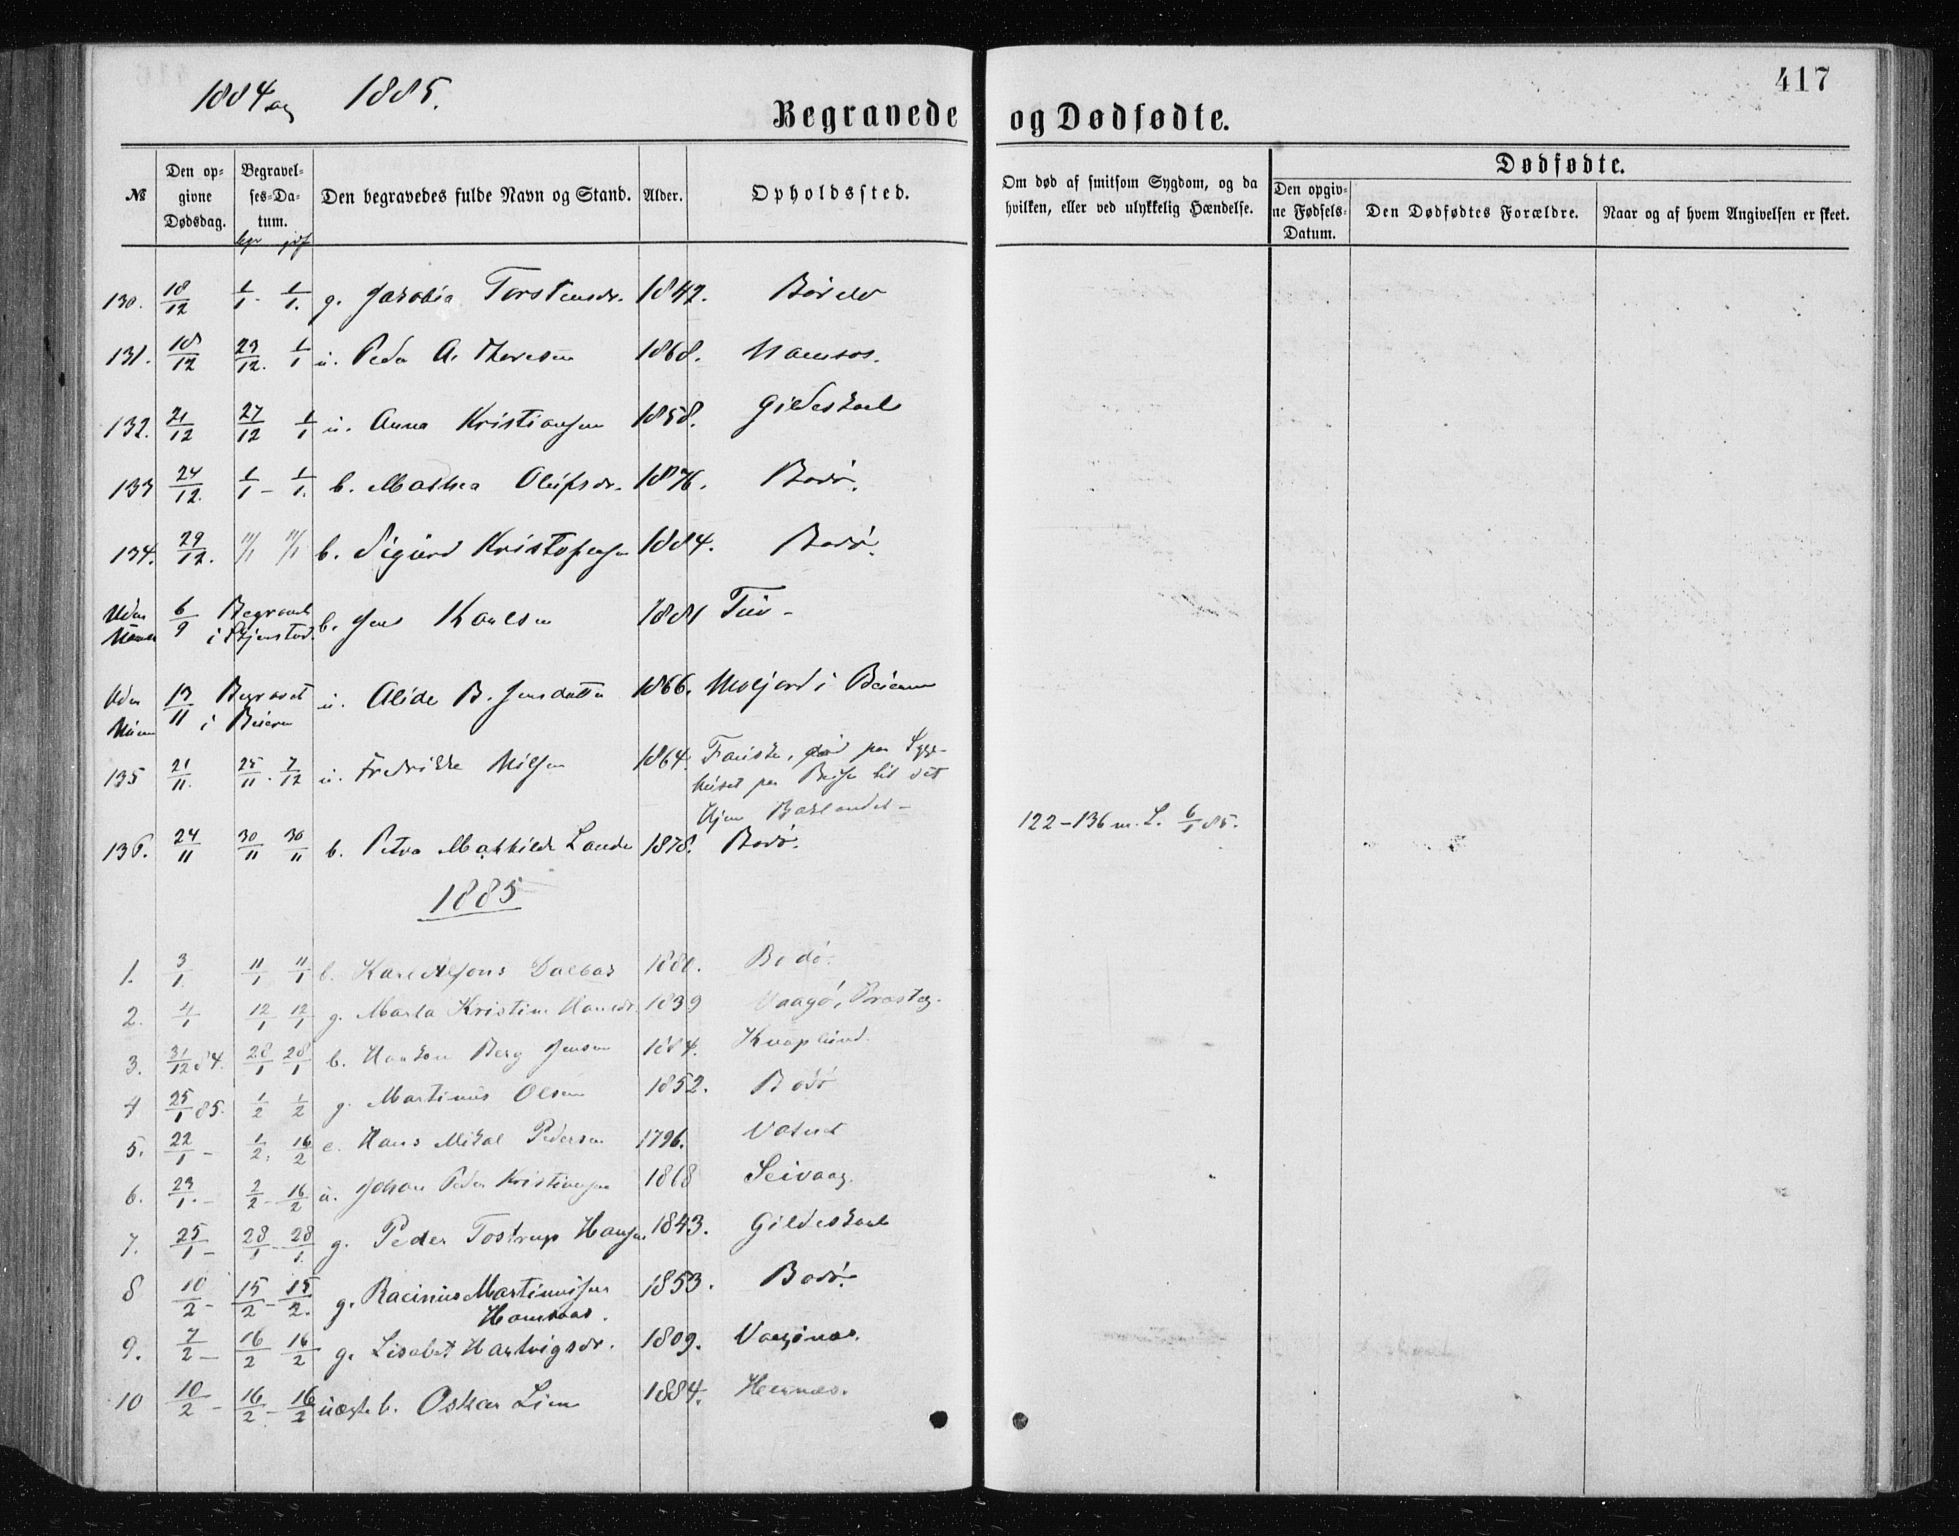 417
1884 og 1885.
Begravede og Dødfødte.
№ Den opgivne Dødsdag. Begravelses-Datum. Den begravedes fulde Navn og Stand. Alder. Opholdssted. Om død af smitsom Sygdom, og da hvilken, eller ved ulykkelig Hændelse. Dødfødte. Den opgivne Fødsels-Datum. Den Dødfødtes Forældre. Naar og af hvem Angivelsen er skeet.
130. 18/12 1/1 - 1/1. g. Jakobia Torstensdr. 1842.
131. 18/12 23/12. 1/1 u. Peder A. Thoresen 1868. Namsos.
132. 21/12 27/12 1/1 u. Anna Kristiansen 1858. Gildeskaal
133 24/12. 1/1 - 1/1. b. Mathea Olufsdr. 1876. Bodø.
134. 29/12. 11/1 11/1 b. Sigurd Kristofersen 1884. Bodø.
Uden Numer 6/9 Begravet i Skjerstad. b. Jens Karlsen 1881 Tuv -
Uden Numer 13/11 Begravet i Beieren u. Alide B. Jensdatter 1866. Moljord i Beieren
135 21/11. 25/11. 7/12 u. Fredrikke Nilsen 1864. Fauske, død paa Syge-
huset paa Reise til sit
Hjem
136. 24/11 30/11 30/11 b. Petra Mathilde Lande 1878. Bodø. 122-136 m. L. 6/1 85.
1885
1. 3/1 11/1 11/1 b. Karl Alfons Dalbak 1880. Bodø.
2. 4/1 12/1 12/1 g. Marta Kristine Hansdr. 1839 Vaagø, Præsteg.
3. 31/12 84. 28/1 28/1 b. Haakon Berg Jensen 1884. Knaplund.
4 25/1 85. 1/2 1/2 g. Martinus Olsen 1852. Bodø
5. 22/1 - 1/2. 16/2 e. Hans Mikal Pedersen 1796. Vatnet
6. 23/1. - 2/2 - 16/2 u. Johan Peder Kristiansen 1868 Seivaag.
7. 25/1 - 28/1 - 28/1. g. Peder Tostrup Hansen 1843. Gildeskaal
8 10/2 - 15/2 - 15/2. g. Racinius Martinussen 1853. Bodø
Hamraas.
9. 7/2 - 16/2 16/2 g. Lisabet Hartvigsdr. 1809. Vaagønes.
10 10/2 - 16/2 - 16/2 uægte b. Oskar Lien 1884. Hernes.